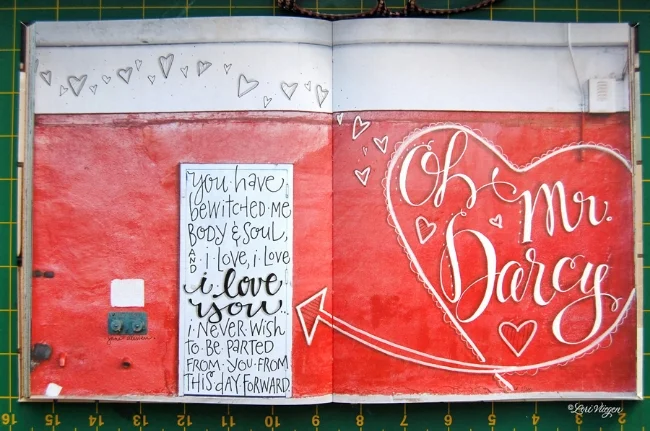 you have
bewitched me
BODY & SOUL,
AND i LOVE, i LOVE
i love
you...
i NEVER WISH
to BE PARTED
FROM YOU FROM
THIS DAY FORWARD.
Oh
Mr.
Darcy
© Lori Vliegen
16 15 14 13 12 11 10 9 8 7 6 5 4 3 2